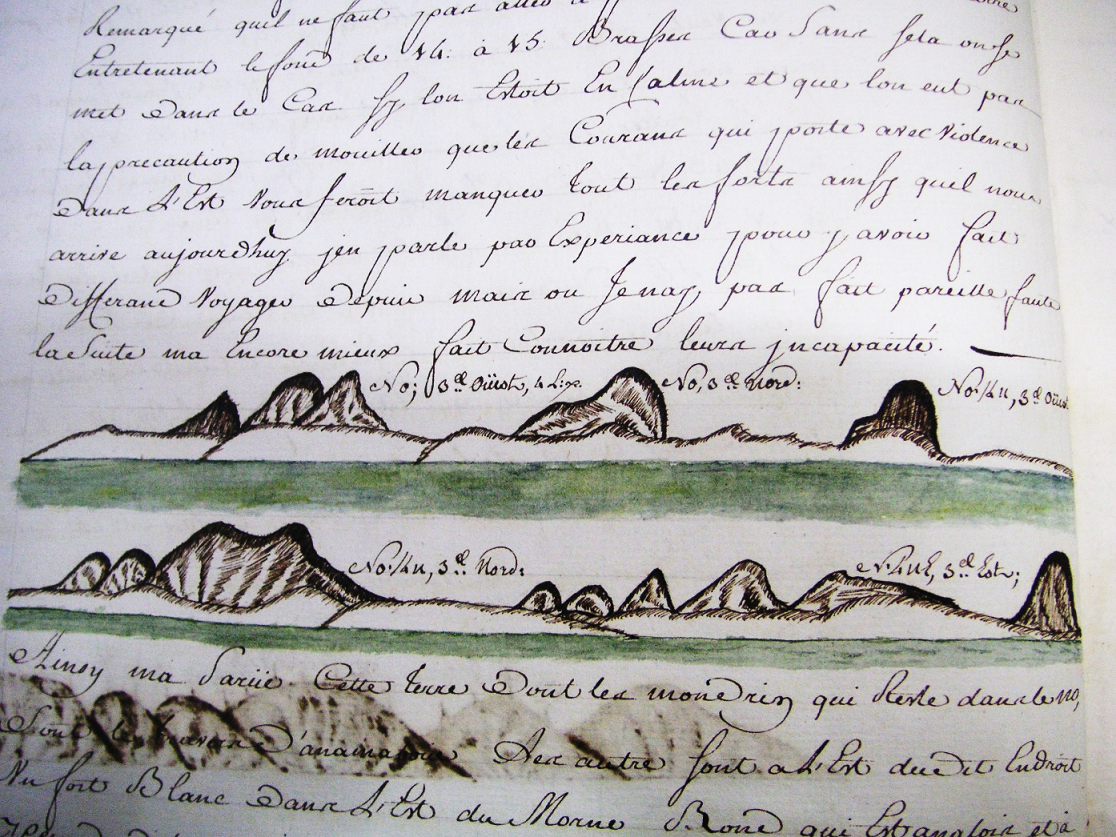 Remarqué quil ne faut pas aller
Entretenant le fond de 14. à 15. Brasses Car Sans sela on se
met Dans le Cas Sy lon Estoit En Calme et que lon eut pas
la precaution de mouiller que les Courans qui porte avec Violence
Dans L'Est Vous feroit manquer tout les forts ainsy quil nous
arrive aujourdhuy jen parle par Experiance pour y avoir fait
Differand Voyages Depuis mais ou Je nay pas fait pareille faute
la Suite ma Encore mieux fait Connoitre leurs jncapacité.
No; 3d Oüest, 4 L
No, 3d Nord:
No 1/4 N, 3d Oüest
No 1/4 N, 3d Nord:
N 1/4 NE, 3d Est;
Ainsy ma Parüe Cette terre Dont les mondrins qui Reste dans le no,
Sont le travers D'anamabou Les autre sont a L'Est du Dit Endroit
Vu fort Blanc Dans L'Est du Morne Rond qui Est anglois et a